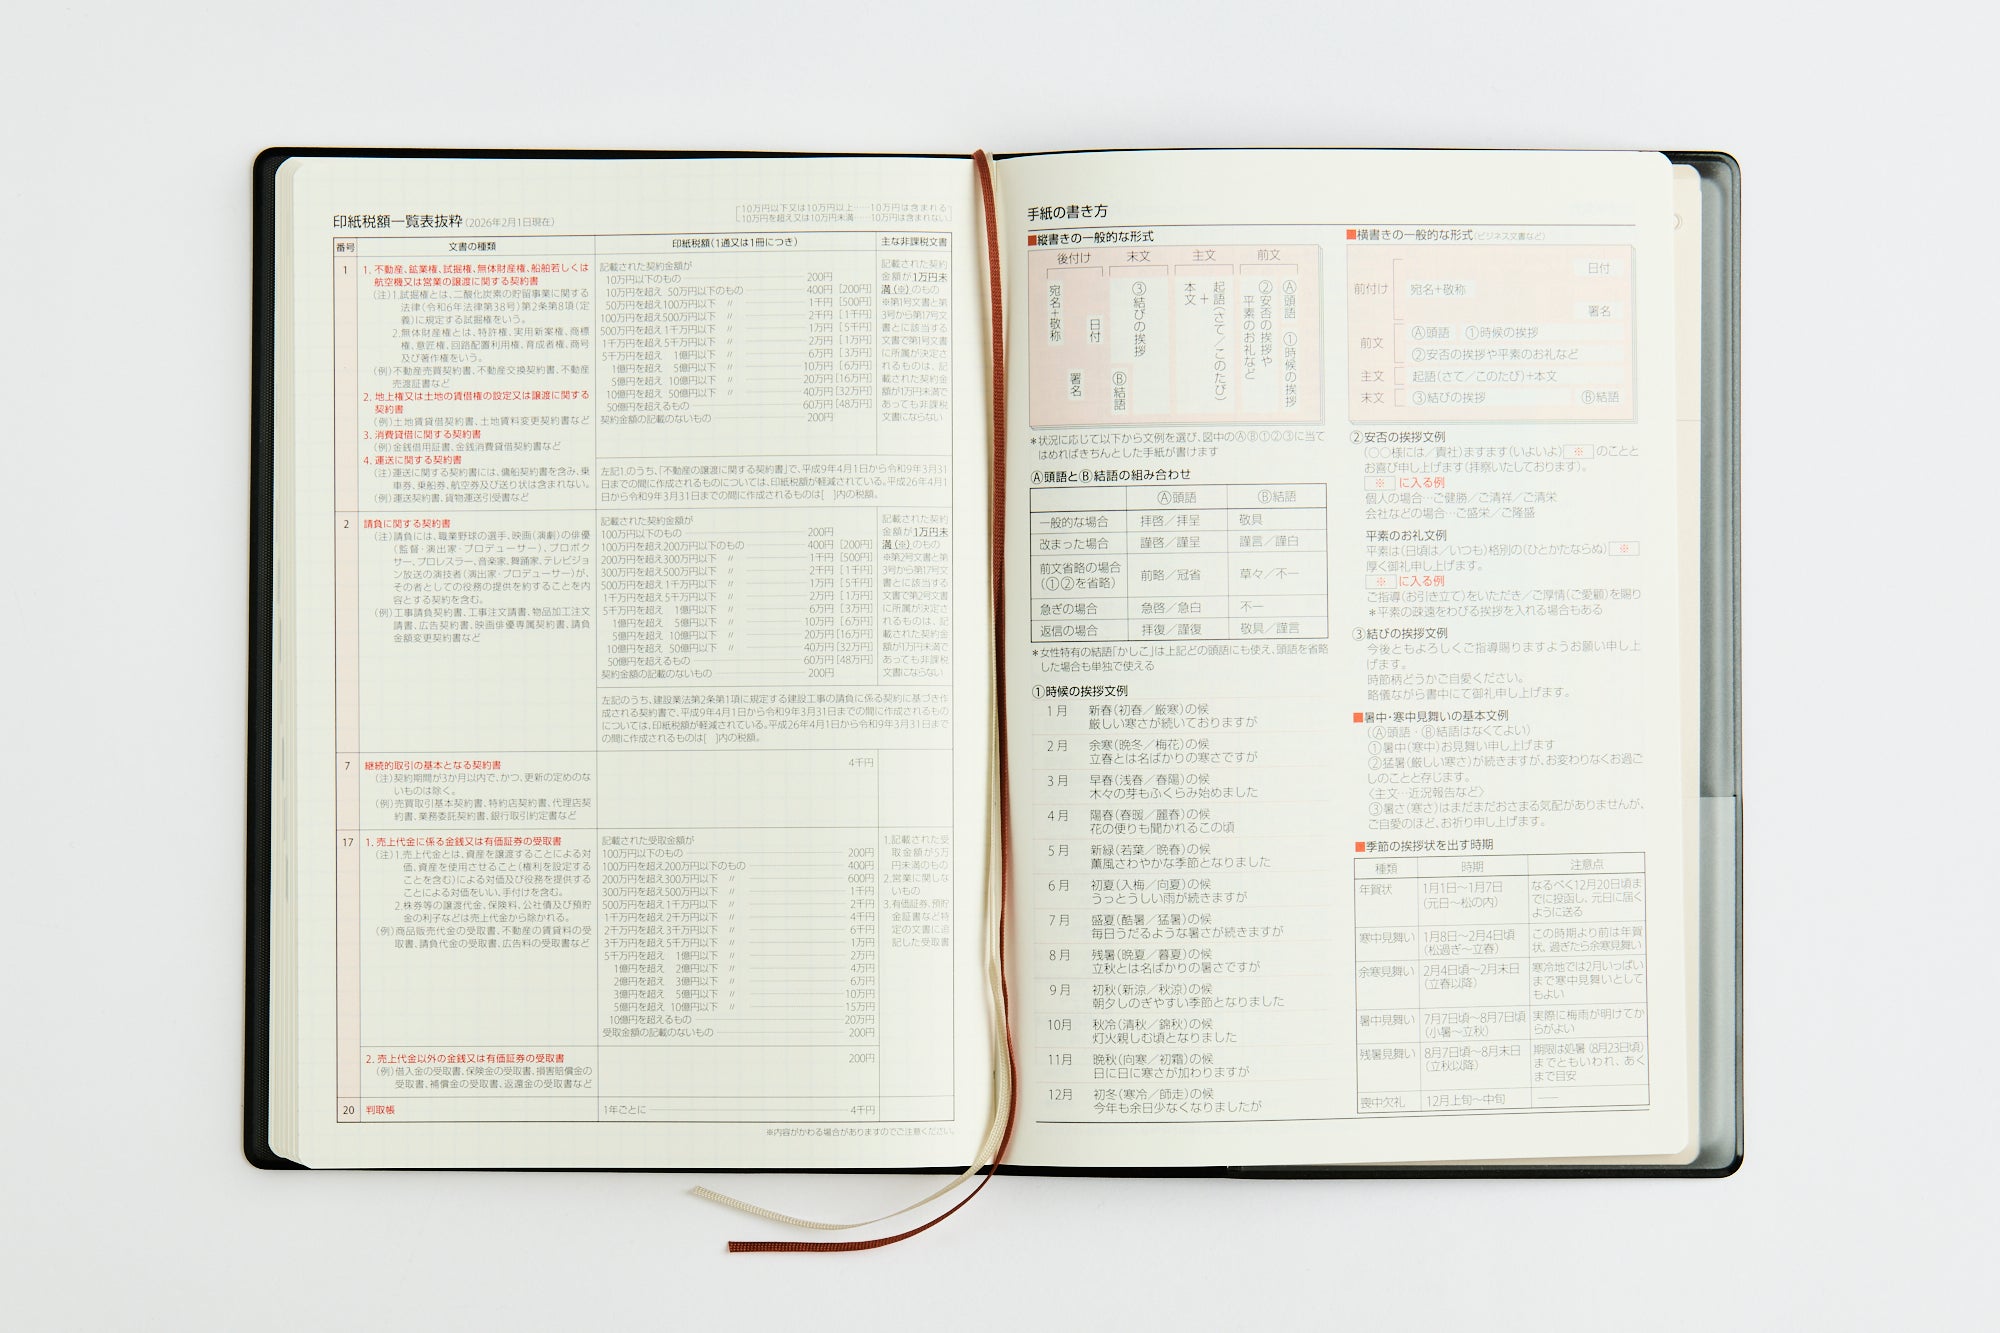 印紙税額一覧表抜粋(2026年2月1日現在)
10万円以下又は10万円以上……10万円は含まれる
10万円を超え又は10万円未満……10万円は含まれない
番号 文書の種類 印紙税額(1通又は1冊につき) 主な非課税文書
1
1. 不動産、鉱業権、試掘権、無体財産権、船舶若しくは
航空機又は営業の譲渡に関する契約書
(注)1.試掘権とは、二酸化炭素の貯留事業に関する
法律(令和6年法律第38号)第2条第8項(定
義)に規定する試掘権をいう。
2.無体財産権とは、特許権、実用新案権、商標
権、意匠権、回路配置利用権、育成者権、商号
及び著作権をいう。
(例)不動産売買契約書、不動産交換契約書、不動産
売渡証書など
2. 地上権又は土地の賃借権の設定又は譲渡に関する
契約書
(例)土地賃貸借契約書、土地賃料変更契約書など
3. 消費貸借に関する契約書
(例)金銭借用証書、金銭消費貸借契約書など
4. 運送に関する契約書
(注)運送に関する契約書には、傭船契約書を含み、乗
車券、乗船券、航空券及び送り状は含まれない。
(例)運送契約書、貨物運送引受書など
記載された契約金額が
10万円以下のもの 200円
10万円を超え 50万円以下のもの 400円 [200円]
50万円を超え100万円以下 〃 1千円 [500円]
100万円を超え500万円以下 〃 2千円 [1千円]
500万円を超え1千万円以下 〃 1万円 [5千円]
1千万円を超え5千万円以下 〃 2万円 [1万円]
5千万円を超え 1億円以下 〃 6万円 [3万円]
1億円を超え 5億円以下 〃 10万円 [6万円]
5億円を超え 10億円以下 〃 20万円 [16万円]
10億円を超え 50億円以下 〃 40万円 [32万円]
50億円を超えるもの 60万円 [48万円]
契約金額の記載のないもの 200円
左記1.のうち、「不動産の譲渡に関する契約書」で、平成9年4月1日から令和9年3月31
日までの間に作成されるものについては、印紙税額が軽減されている。平成26年4月1
日から令和9年3月31日までの間に作成されるものは[ ]内の税額。
記載された契約
金額が1万円未
満(※)のもの
※第1号文書と第
3号から第17号文
書とに該当する
文書で第1号文書
に所属が決定さ
れるものは、記
載された契約金
額が1万円未満で
あっても非課税
文書にならない
2
請負に関する契約書
(注)請負には、職業野球の選手、映画(演劇)の俳優
(監督・演出家・プロデューサー)、プロボク
サー、プロレスラー、音楽家、舞踊家、テレビジョ
ン放送の演技者(演出家・プロデューサー)が、
その者としての役務の提供を約することを内
容とする契約を含む。
(例)工事請負契約書、工事注文請書、物品加工注文
請書、広告契約書、映画俳優専属契約書、請負
金額変更契約書など
記載された契約金額が
100万円以下のもの 200円
100万円を超え200万円以下のもの 400円 [200円]
200万円を超え300万円以下 〃 1千円 [500円]
300万円を超え500万円以下 〃 2千円 [1千円]
500万円を超え1千万円以下 〃 1万円 [5千円]
1千万円を超え5千万円以下 〃 2万円 [1万円]
5千万円を超え 1億円以下 〃 6万円 [3万円]
1億円を超え 5億円以下 〃 10万円 [6万円]
5億円を超え 10億円以下 〃 20万円 [16万円]
10億円を超え 50億円以下 〃 40万円 [32万円]
50億円を超えるもの 60万円 [48万円]
契約金額の記載のないもの 200円
左記のうち、建設業法第2条第1項に規定する建設工事の請負に係る契約に基づき作
成される契約書で、平成9年4月1日から令和9年3月31日までの間に作成されるもの
については、印紙税額が軽減されている。平成26年4月1日から令和9年3月31日まで
の間に作成されるものは[ ]内の税額。
記載された契約
金額が1万円未
満(※)のもの
※第2号文書と第
3号から第17号文
書とに該当する
文書で第2号文書
に所属が決定さ
れるものは、記
載された契約金
額が1万円未満で
あっても非課税
文書にならない
7
継続的取引の基本となる契約書
(注)契約期間が3か月以内で、かつ、更新の定めのな
いものは除く。
(例)売買取引基本契約書、特約店契約書、代理店契
約書、業務委託契約書、銀行取引約定書など
4千円
17
1. 売上代金に係る金銭又は有価証券の受取書
(注)1.売上代金とは、資産を譲渡することによる対
価、資産を使用させること(権利を設定する
ことを含む)による対価及び役務を提供する
ことによる対価をいい、手付けを含む。
2.株券等の譲渡代金、保険料、公社債及び預貯
金の利子などは売上代金から除かれる。
(例)商品販売代金の受取書、不動産の賃貸料の受
取書、請負代金の受取書、広告料の受取書など
記載された受取金額が
100万円以下のもの 200円
100万円を超え200万円以下のもの 400円
200万円を超え300万円以下 〃 600円
300万円を超え500万円以下 〃 1千円
500万円を超え1千万円以下 〃 2千円
1千万円を超え2千万円以下 〃 4千円
2千万円を超え3千万円以下 〃 6千円
3千万円を超え5千万円以下 〃 1万円
5千万円を超え 1億円以下 〃 2万円
1億円を超え 2億円以下 〃 4万円
2億円を超え 3億円以下 〃 6万円
3億円を超え 5億円以下 〃 10万円
5億円を超え 10億円以下 〃 15万円
10億円を超えるもの 20万円
受取金額の記載のないもの 200円
1.記載された受
取金額が5万
円未満のもの
2.営業に関しな
いもの
3.有価証券、預貯
金証書など特
定の文書に追
記した受取書
2. 売上代金以外の金銭又は有価証券の受取書
(例)借入金の受取書、保険金の受取書、損害賠償金の
受取書、補償金の受取書、返還金の受取書など
200円
20 判取帳 1年ごとに 4千円
※内容がかわる場合がありますのでご注意ください。
手紙の書き方
■縦書きの一般的な形式
後付け 末文 主文 前文
Ⓐ頭語 ①時候の挨拶
②安否の挨拶や
平素のお礼など
起語(さて/このたび)
+
本文
③結びの挨拶
Ⓑ結語
日付
署名
宛名+敬称
*状況に応じて以下から文例を選び、図中のⒶⒷ①②③に当て
はめればきちんとした手紙が書けます
Ⓐ頭語とⒷ結語の組み合わせ
Ⓐ頭語 Ⓑ結語
一般的な場合 拝啓/拝呈 敬具
改まった場合 謹啓/謹呈 謹言/謹白
前文省略の場合
(①②を省略) 前略/冠省 草々/不一
急ぎの場合 急啓/急白 不一
返信の場合 拝復/謹復 敬具/謹言
*女性特有の結語「かしこ」は上記どの頭語にも使え、頭語を省略
した場合も単独で使える
①時候の挨拶文例
1月 新春(初春/厳寒)の候
厳しい寒さが続いておりますが
2月 余寒(晩冬/梅花)の候
立春とは名ばかりの寒さですが
3月 早春(浅春/春陽)の候
木々の芽もふくらみ始めました
4月 陽春(春暖/麗春)の候
花の便りも聞かれるこの頃
5月 新緑(若葉/晩春)の候
薫風さわやかな季節となりました
6月 初夏(入梅/向夏)の候
うっとうしい雨が続きますが
7月 盛夏(酷暑/猛暑)の候
毎日うだるような暑さが続きますが
8月 残暑(晩夏/暮夏)の候
立秋とは名ばかりの暑さですが
9月 初秋(新涼/秋涼)の候
朝夕しのぎやすい季節となりました
10月 秋冷(清秋/錦秋)の候
灯火親しむ頃となりました
11月 晩秋(向寒/初霜)の候
日に日に寒さが加わりますが
12月 初冬(寒冷/師走)の候
今年も余日少なくなりましたが
■横書きの一般的な形式(ビジネス文書など)
日付
前付け 宛名+敬称
署名
前文 Ⓐ頭語 ①時候の挨拶
②安否の挨拶や平素のお礼など
主文 起語(さて/このたび)+本文
末文 ③結びの挨拶 Ⓑ結語
②安否の挨拶文例
(〇〇様には/貴社)ますます(いよいよ) ※ のことと
お喜び申し上げます(拝察いたしております)。
※ に入る例
個人の場合…ご健勝/ご清祥/ご清栄
会社などの場合…ご盛栄/ご隆盛
平素のお礼文例
平素は(日頃は/いつも)格別の(ひとかたならぬ) ※
厚く御礼申し上げます。
※ に入る例
ご指導(お引き立て)をいただき/ご厚情(ご愛顧)を賜り
*平素の疎遠をわびる挨拶を入れる場合もある
③結びの挨拶文例
今後ともよろしくご指導賜りますようお願い申し上
げます。
時節柄どうかご自愛ください。
略儀ながら書中にて御礼申し上げます。
■暑中・寒中見舞いの基本文例
(Ⓐ頭語・Ⓑ結語はなくてよい)
①暑中(寒中)お見舞い申し上げます
②猛暑(厳しい寒さ)が続きますが、お変わりなくお過ご
しのことと存じます。
〈主文…近況報告など〉
③暑さ(寒さ)はまだまだおさまる気配がありませんが、
ご自愛のほど、お祈り申し上げます。
■季節の挨拶状を出す時期
種類 時期 注意点
年賀状 1月1日〜1月7日
(元日〜松の内)
なるべく12月20日頃ま
でに投函し、元日に届く
ように送る
寒中見舞い 1月8日〜2月4日頃
(松過ぎ〜立春)
この時期より前は年賀
状、過ぎたら余寒見舞い
余寒見舞い 2月4日頃〜2月末日
(立春以降)
寒冷地では2月いっぱい
まで寒中見舞いとして
もよい
暑中見舞い 7月7日頃〜8月7日頃
(小暑〜立秋)
実際に梅雨が明けてか
らがよい
残暑見舞い 8月7日頃〜8月末日
(立秋以降)
期限は処暑(8月23日頃)
までともいわれ、あく
まで目安
喪中欠礼 12月上旬〜中旬 ――